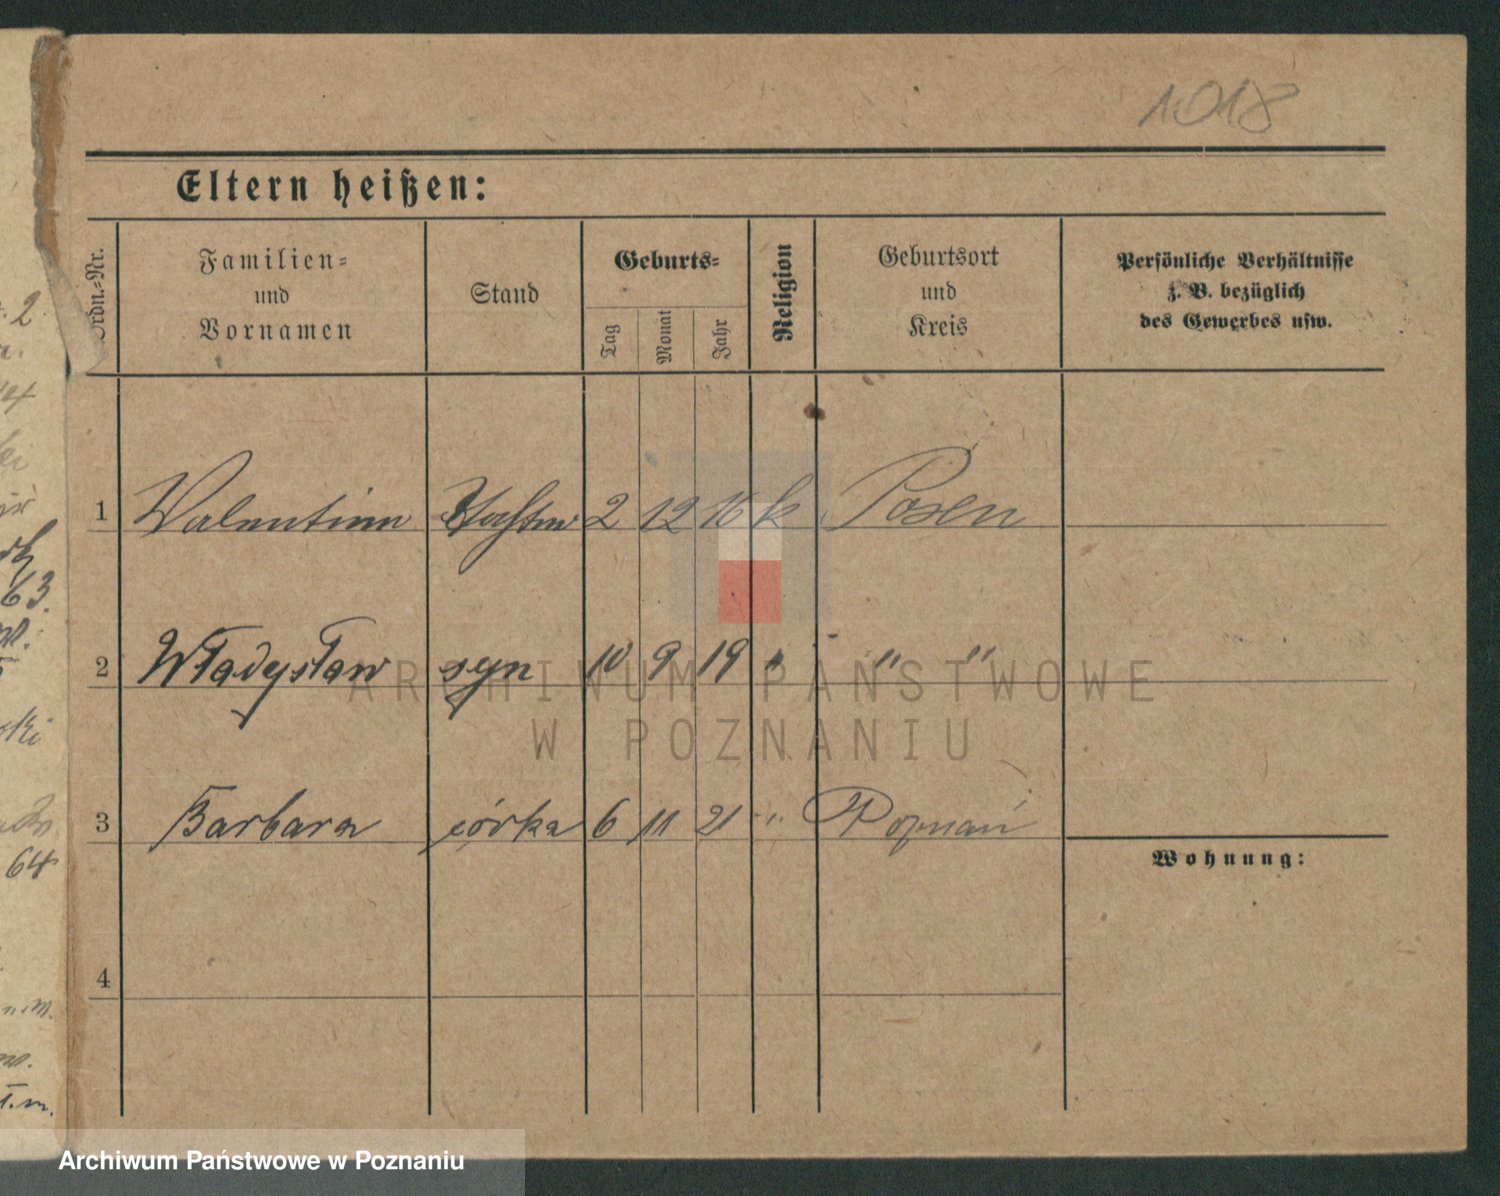 1018
Eltern heißen:
Ordn.-Nr.
Familien-
und
Vornamen
Stand
Geburts-
Tag
Monat
Jahr
Religion
Geburtsort
und
Kreis
Persönliche Verhältnisse
z. B. bezüglich
des Gewerbes usw.
1 Valentina Tochter 2 12 16 k Posen
2 Władysław syn 10 9 19 " " "
3 Barbara córka 6 11 21 " Poznań
Wohnung:
4
ARCHIWUM PAŃSTWOWE
W POZNANIU
2.
63.
64
Archiwum Państwowe w Poznaniu